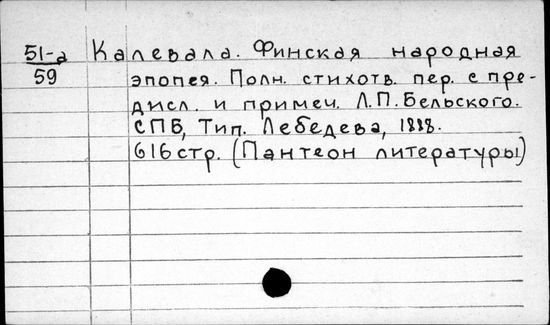 51-а Калевала. Финская народная
59 эпопея. Полн. стихотв. пер. с пре-
дисл. и примеч. Л.П. Бельского.
СПБ, Тип. Лебедева, 1888.
616 стр. (Пантеон литературы)